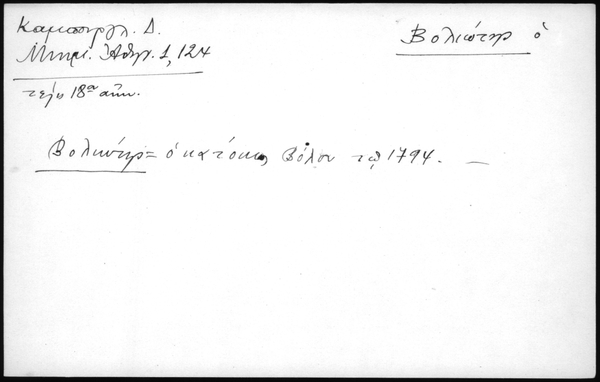 Καμπούρογλ. Δ.
Μνημ. Ἀθην. 1, 124
Βολιώτης ὁ
τέλη 18ου αἰών.
Βολιώτης = ὁ κάτοικος Βόλου τῷ 1794. —